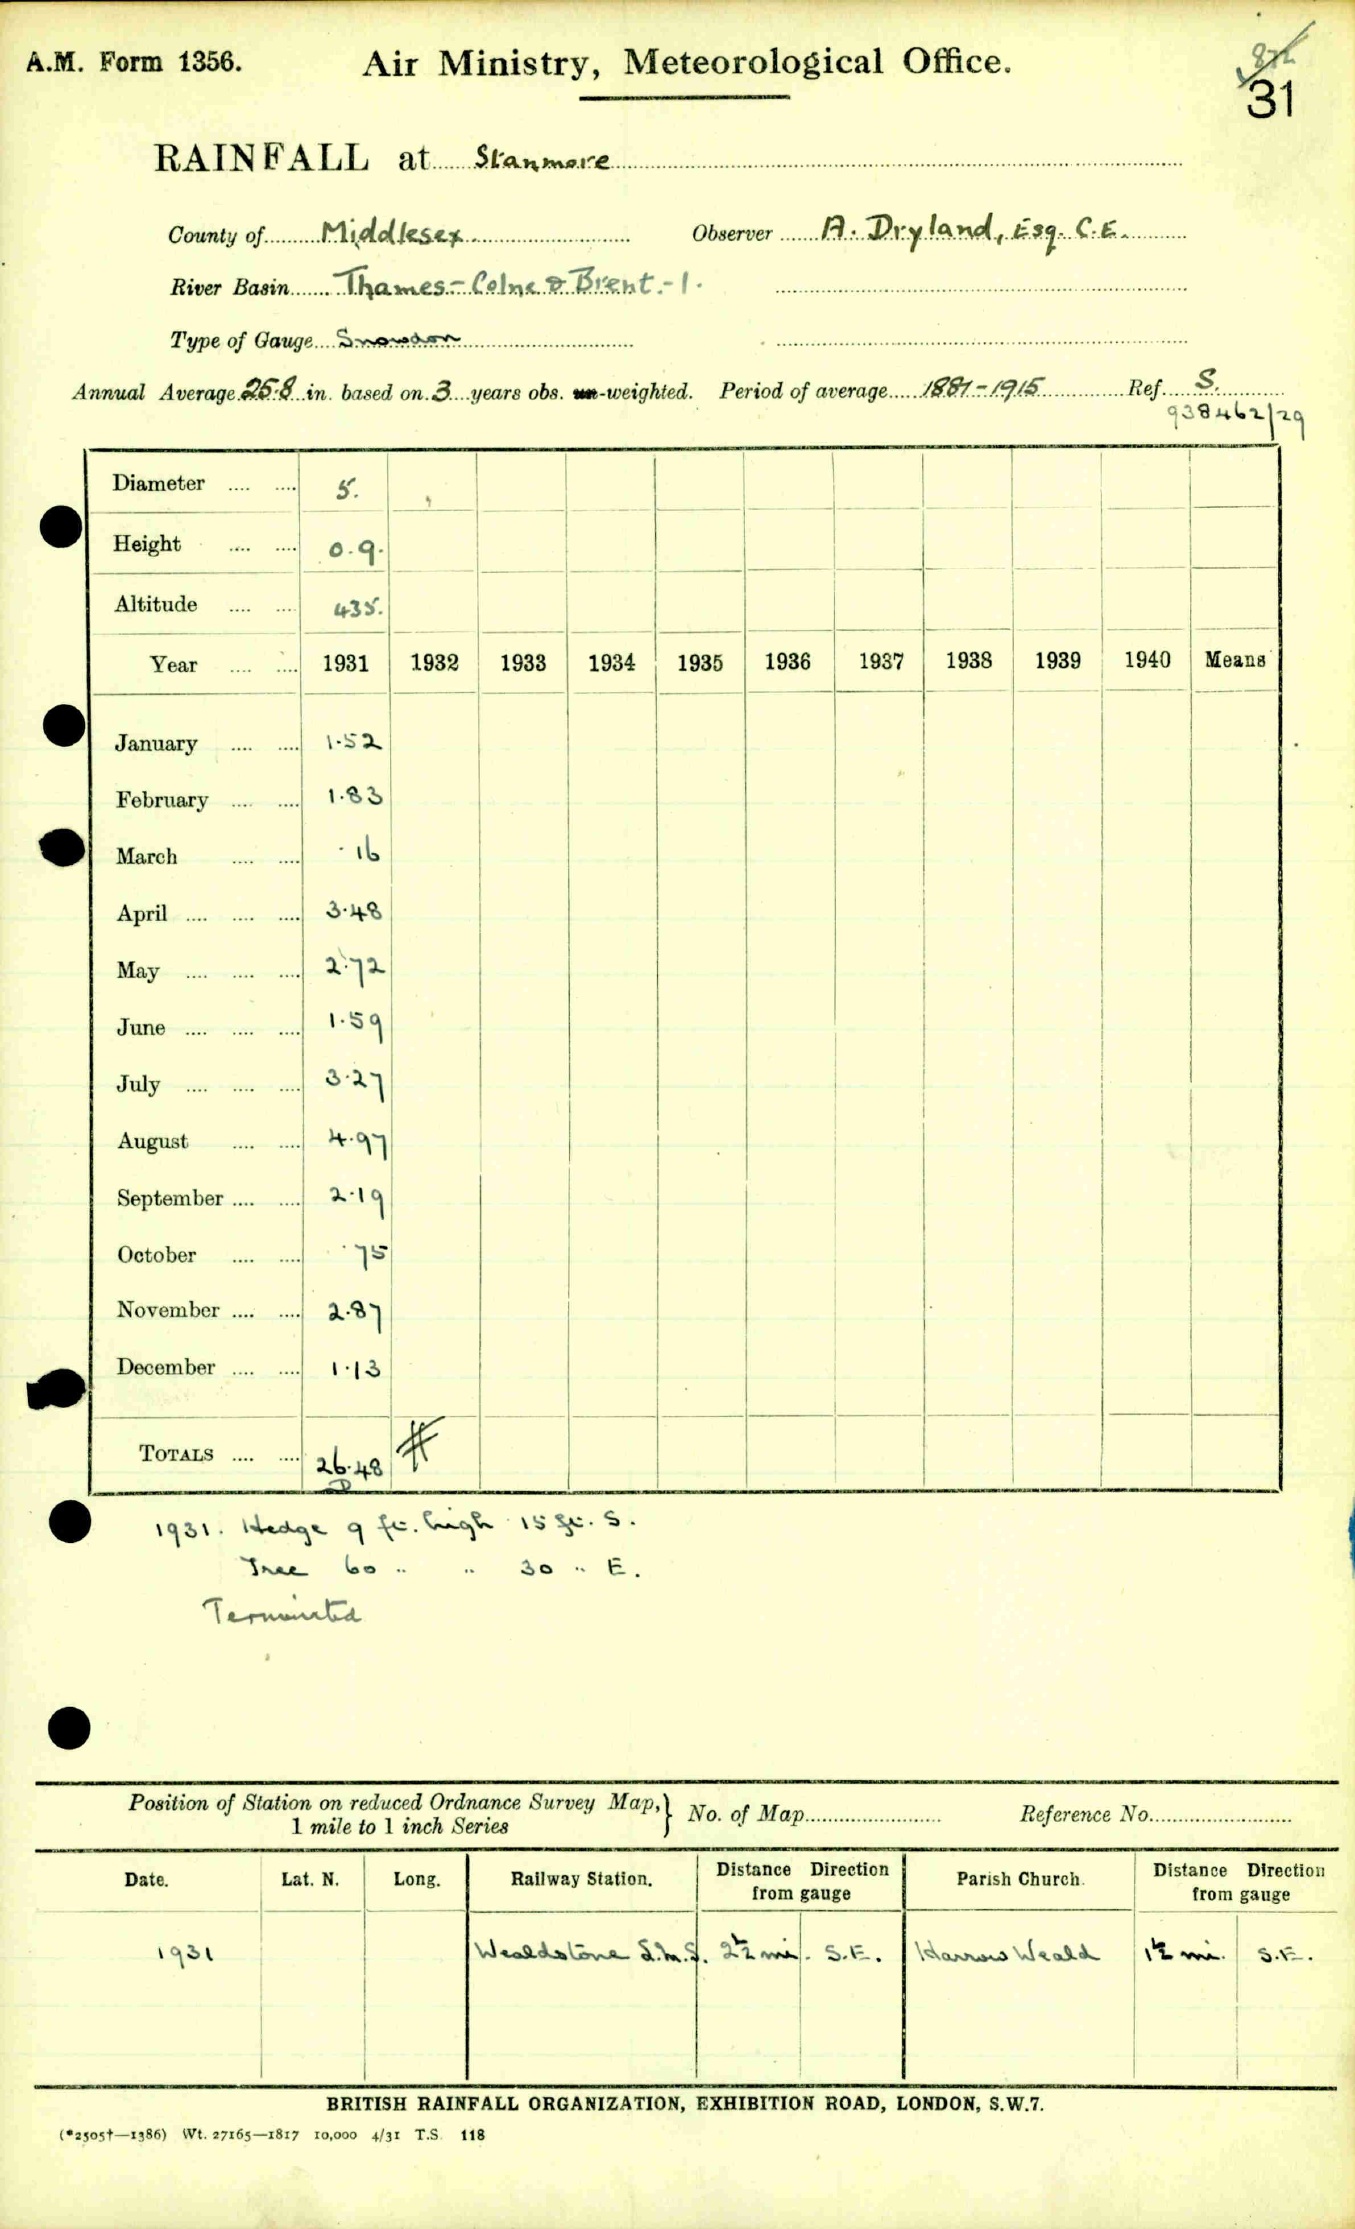 A.M. Form 1356. Air Ministry, Meteorological Office.
31
RAINFALL at Stanmore
County of Middlesex. Observer A. Dryland, Esq. C.E.
River Basin Thames - Colne & Brent. - 1.
Type of Gauge Snowdon
Annual Average 25.8 in. based on 3 years obs. un-weighted. Period of average 1881-1915 Ref. S.
938462/29
Diameter .... .... 5.
Height .... .... 0.9.
Altitude .... .... 435.
Year .... .... 1931 1932 1933 1934 1935 1936 1937 1938 1939 1940 Means
January .... .... 1.52
February .... .... 1.83
March .... .... .16
April .... .... .... 3.48
May .... .... .... 2.72
June .... .... .... 1.59
July .... .... .... 3.27
August .... .... 4.97
September .... .... 2.19
October .... .... .75
November .... .... 2.87
December .... .... 1.13
TOTALS .... .... 26.48
1931. Hedge 9 ft. high 15 ft. S.
Tree 60 " " 30 " E.
Position of Station on reduced Ordnance Survey Map,} No. of Map Reference No.
1 mile to 1 inch Series
Date. Lat. N. Long. Railway Station. Distance Direction from gauge Parish Church. Distance Direction from gauge
1931 Wealdstone L.M.S. 2½ mi. S.E. Harrow Weald 1½ mi. S.E.
BRITISH RAINFALL ORGANIZATION, EXHIBITION ROAD, LONDON, S.W.7.
(*2505†—1386) Wt. 27165—1817 10,000 4/31 T.S. 118